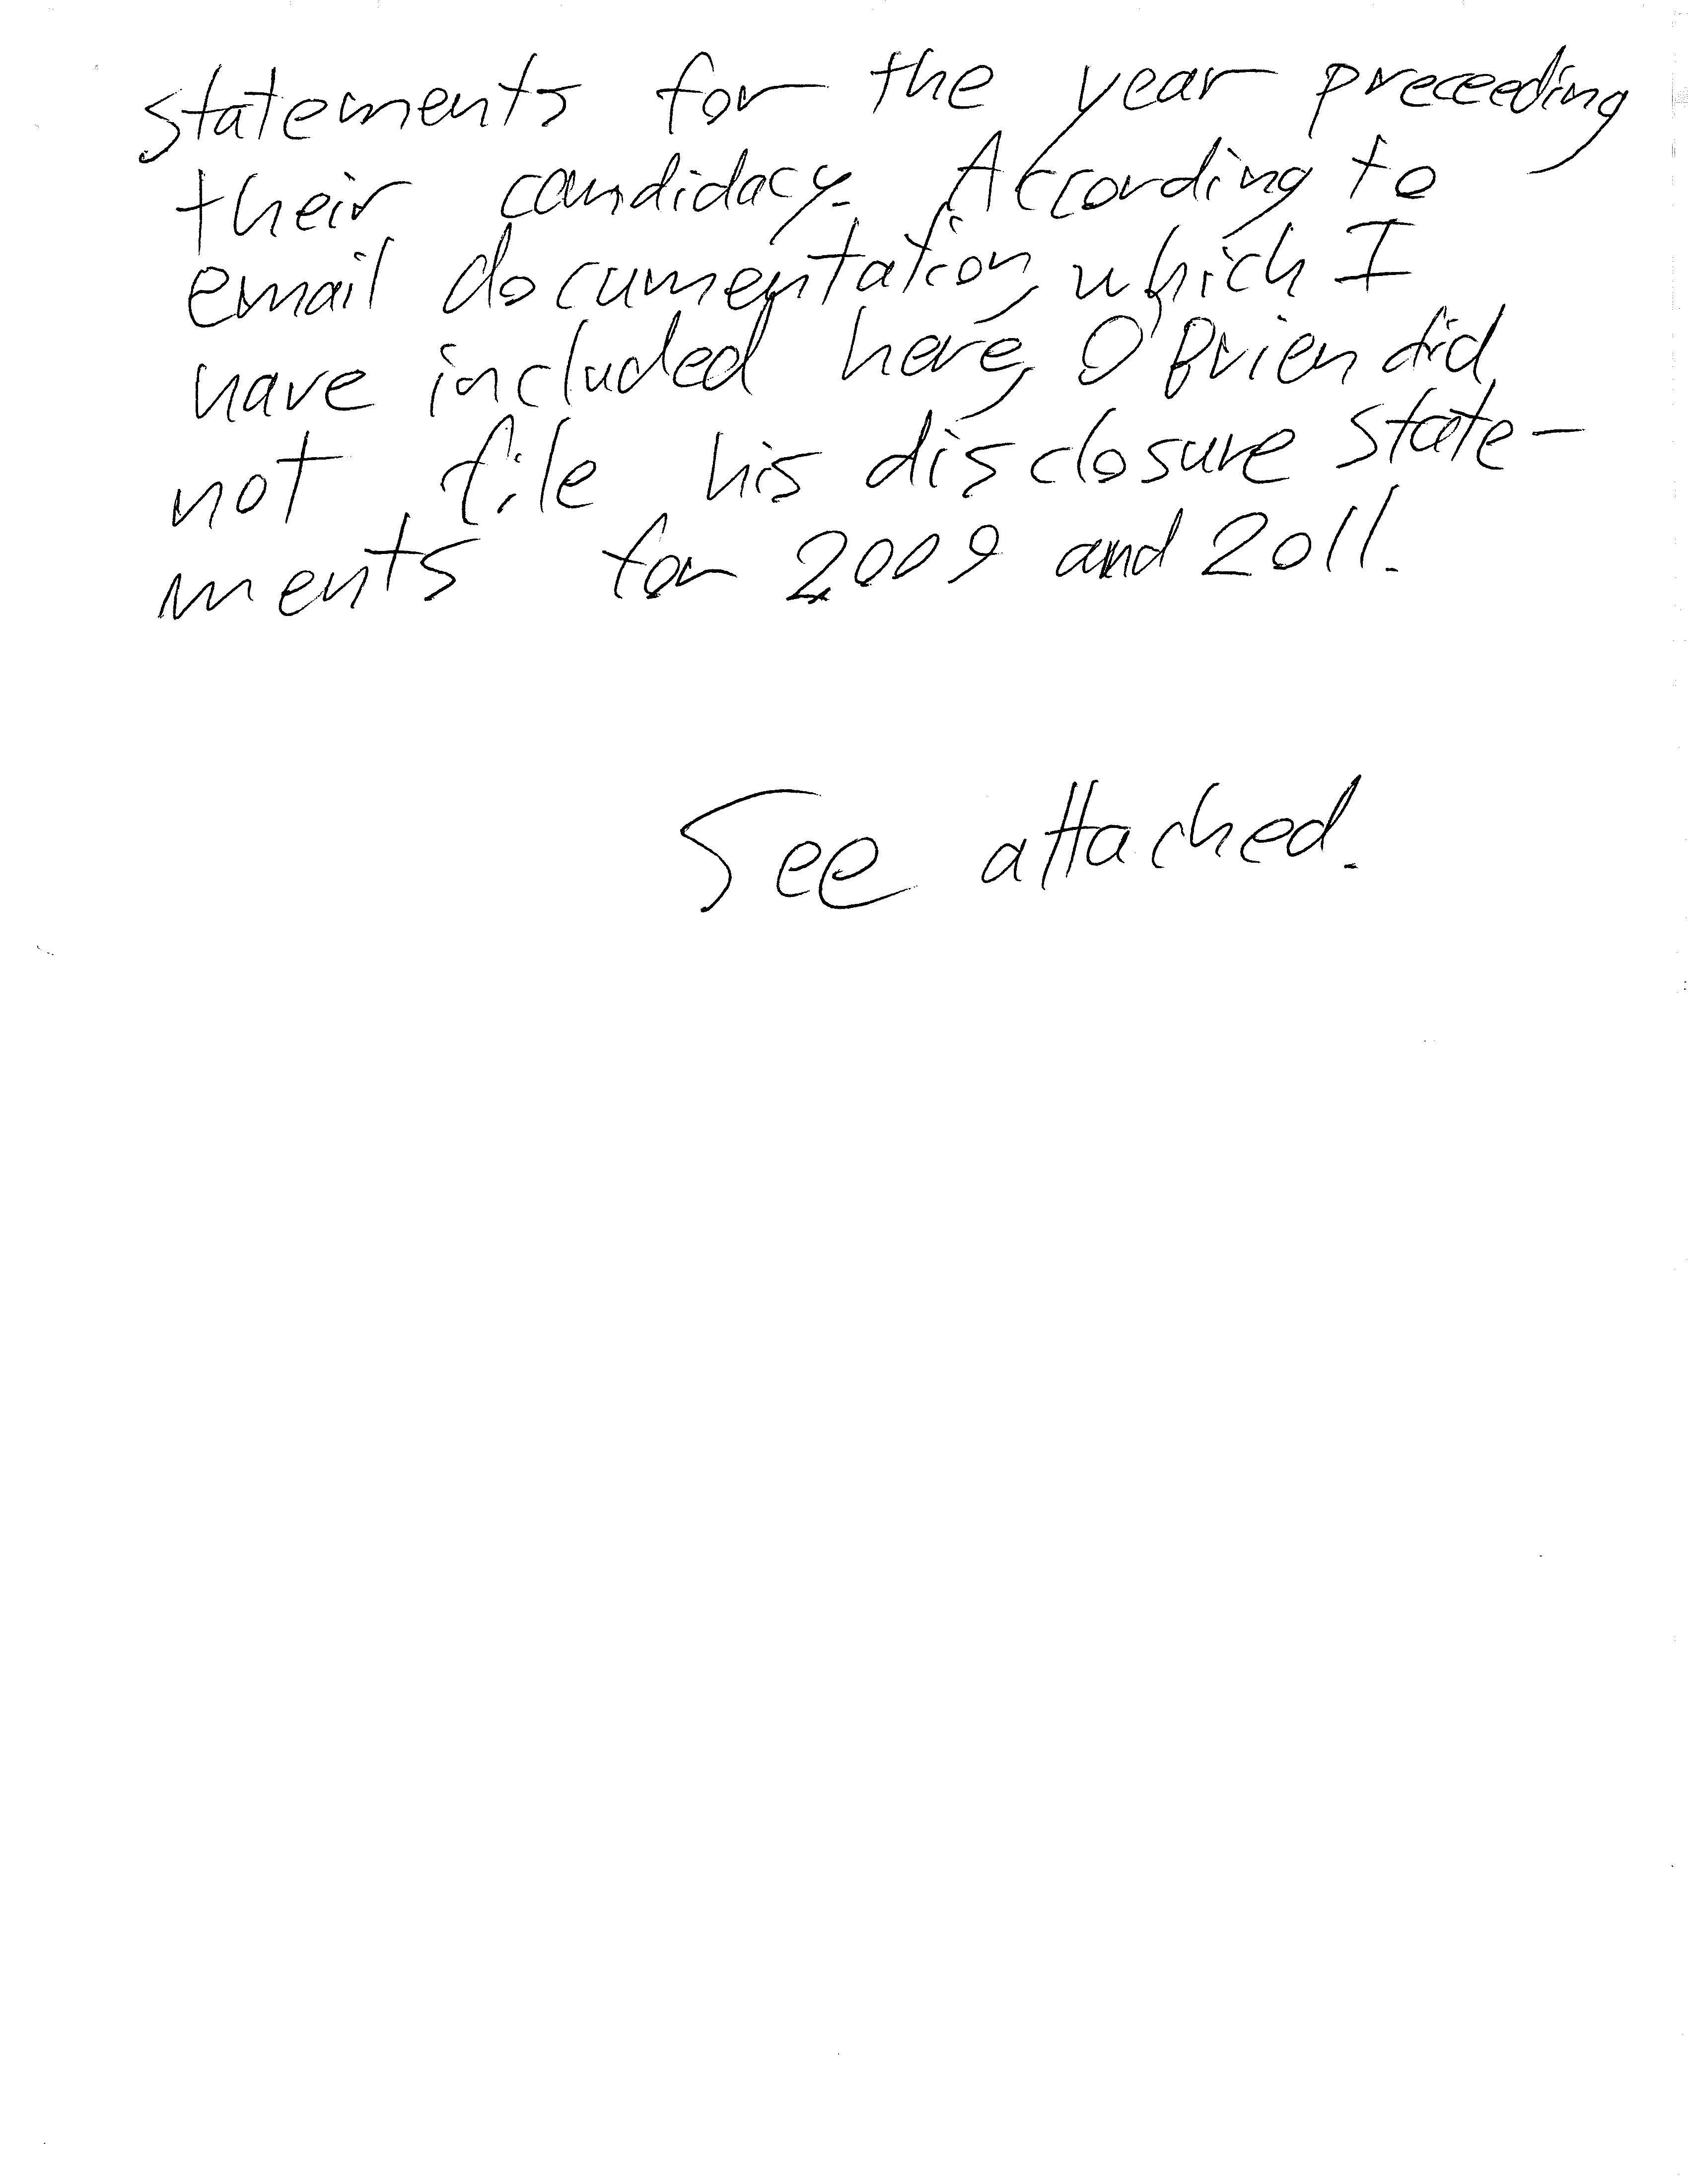 statements for the year preceeding
their candidacy. According to
email documentation, which I
have included here, O'Brien did
not file his disclosure state-
ments for 2009 and 2011.
See attached.